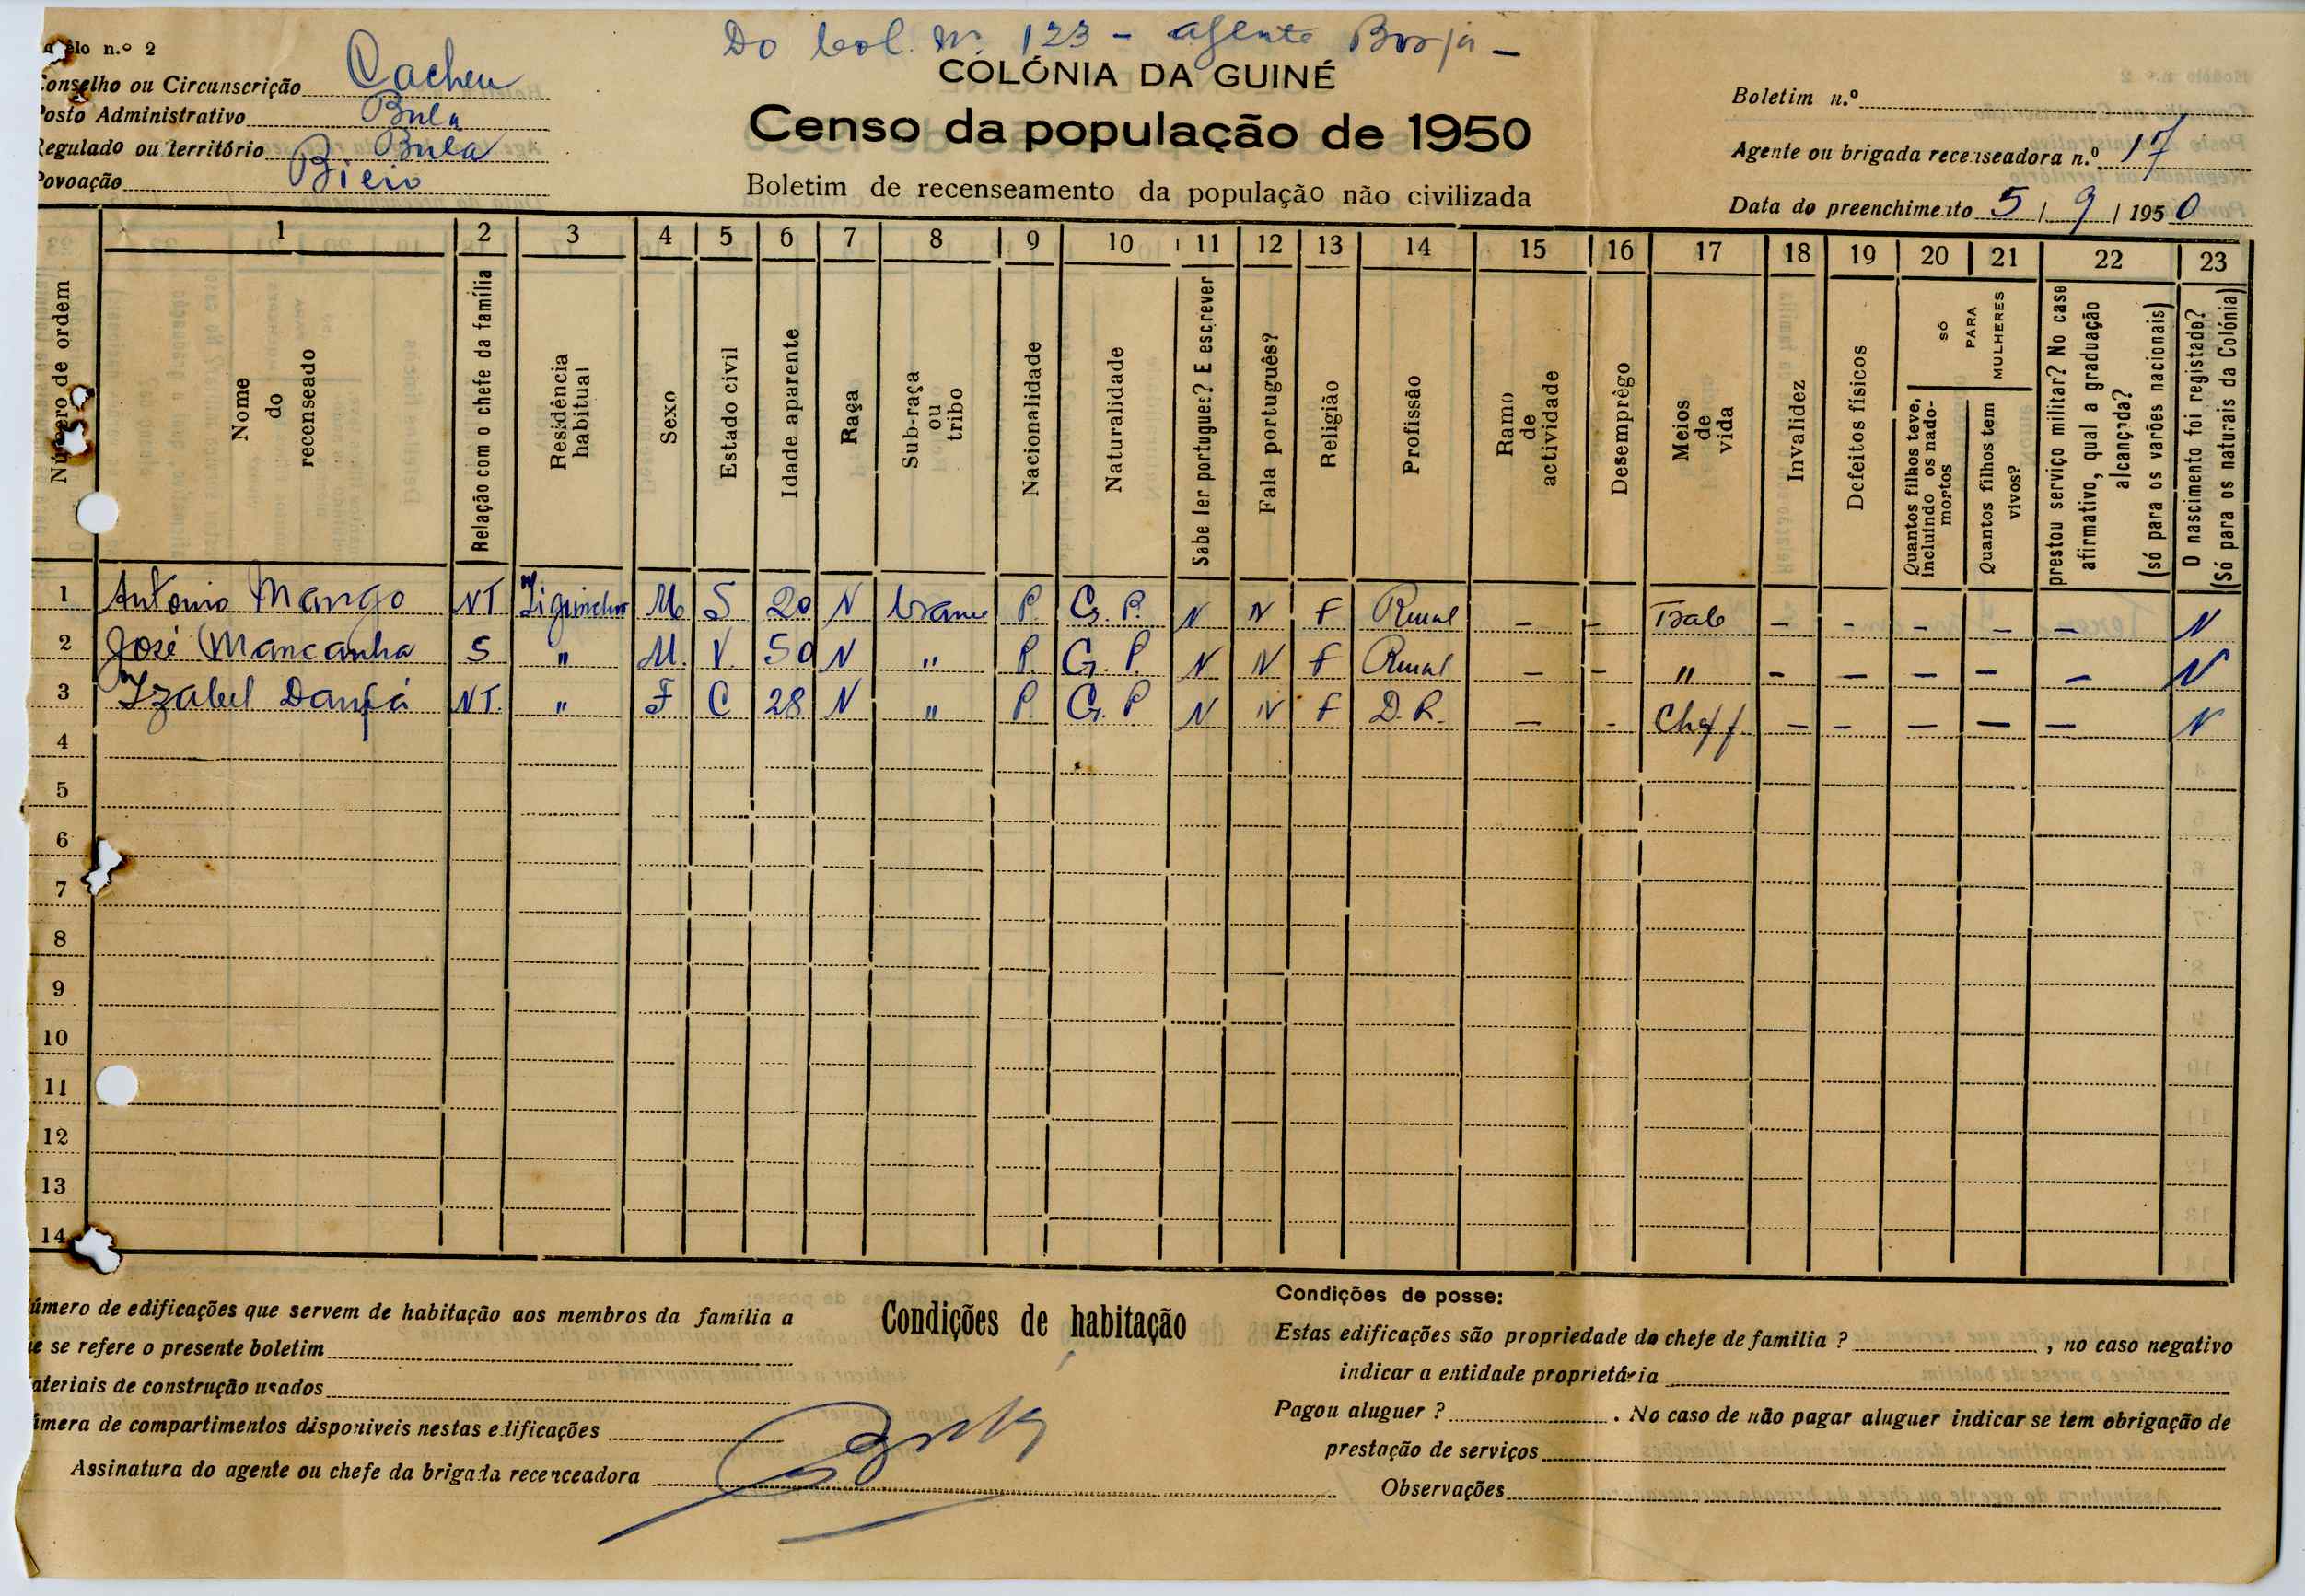 Do bol. Nº 123 - agente Borja -
élo n.º 2
Conselho ou Circunscrição Cacheu
Posto Administrativo Bula
Regulado ou território Bula
Povoação
COLÓNIA DA GUINÉ
Censo da população de 1950
Boletim de recenseamento da população não civilizada
Boletim n.º
Agente ou brigada recenseadora n.º 17
Data do preenchimento 5 / 9 / 1950
Número de ordem
1 2 3 4 5 6 7 8 9 10 11 12 13 14 15 16 17 18 19 20 21 22 23
Nome do recenseado
Relação com o chefe da família
Residência habitual
Sexo
Estado civil
Idade aparente
Raça
Sub-raça ou tribo
Nacionalidade
Naturalidade
Sabe ler português? E escrever
Fala português?
Religião
Profissão
Ramo de actividade
Desemprêgo
Meios de vida
Invalidez
Defeitos físicos
SÓ PARA MULHERES
Quantos filhos teve, incluindo os nado-mortos
Quantos filhos tem vivos?
prestou serviço militar? No caso afirmativo, qual a graduação alcançada? (só para os varões nacionais)
O nascimento foi registado? (Só para os naturais da Colónia)
1 Antonio Mango NT Ziguinchor M S 20 N brame P. G. P. N N F Rural - - Trab - - - - - N
2 José Mancanha S " M. V. 50 N " P. G. P. N N F Rural - - " - - - - - N
3 Izabel Danfá NT. " F C 28 N " P. G. P N N F D. R. - - Chef f. - - - - - N
4
5
6
7
8
9
10
11
12
13
14
Condições de habitação
úmero de edificações que servem de habitação aos membros da família a
e se refere o presente boletim
ateriais de construção usados
úmera de compartimentos disponíveis nestas edificações
Assinatura do agente ou chefe da brigada recenceadora
Condições de posse:
Estas edificações são propriedade do chefe de família ? , no caso negativo
indicar a entidade proprietária
Pagou aluguer ? . No caso de não pagar aluguer indicar se tem obrigação de
prestação de serviços
Observações